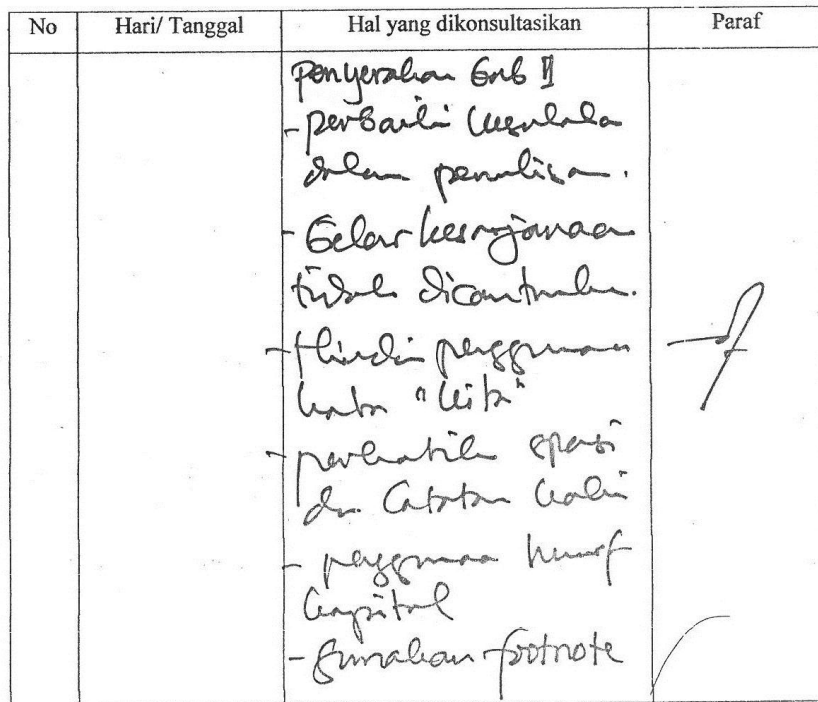 No Hari/ Tanggal Hal yang dikonsultasikan Paraf
Penyerahan Bab II
- perbaiki kesalahan
dalam penulisan.
- Gelar kesarjanaan
tidak dicantumkan.
- Hindari penggunaan
kata "kita"
- perhatikan spasi
dan Catatan kaki
- penggunaan huruf
kapital
- gunakan footnote